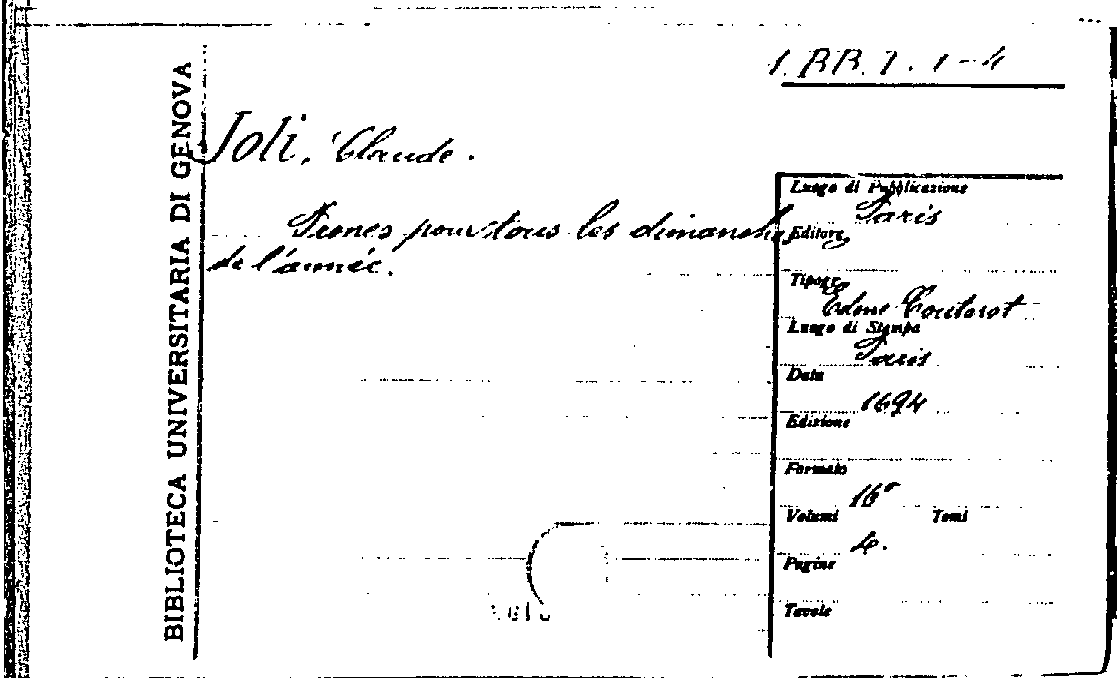 BIBLIOTECA UNIVERSITARIA DI GENOVA
1. BB. 7. 1-4
Joli, Claude.
Prones pour tous les dimanches
de l'année.
Luogo di Pubblicazione
Paris
Editore
Tipogr.
Edme Couterot
Luogo di Stampa
Paris
Data
1694
Edizione
Formato
16°
Volumi Tomi
4.
Pagine
Tavole